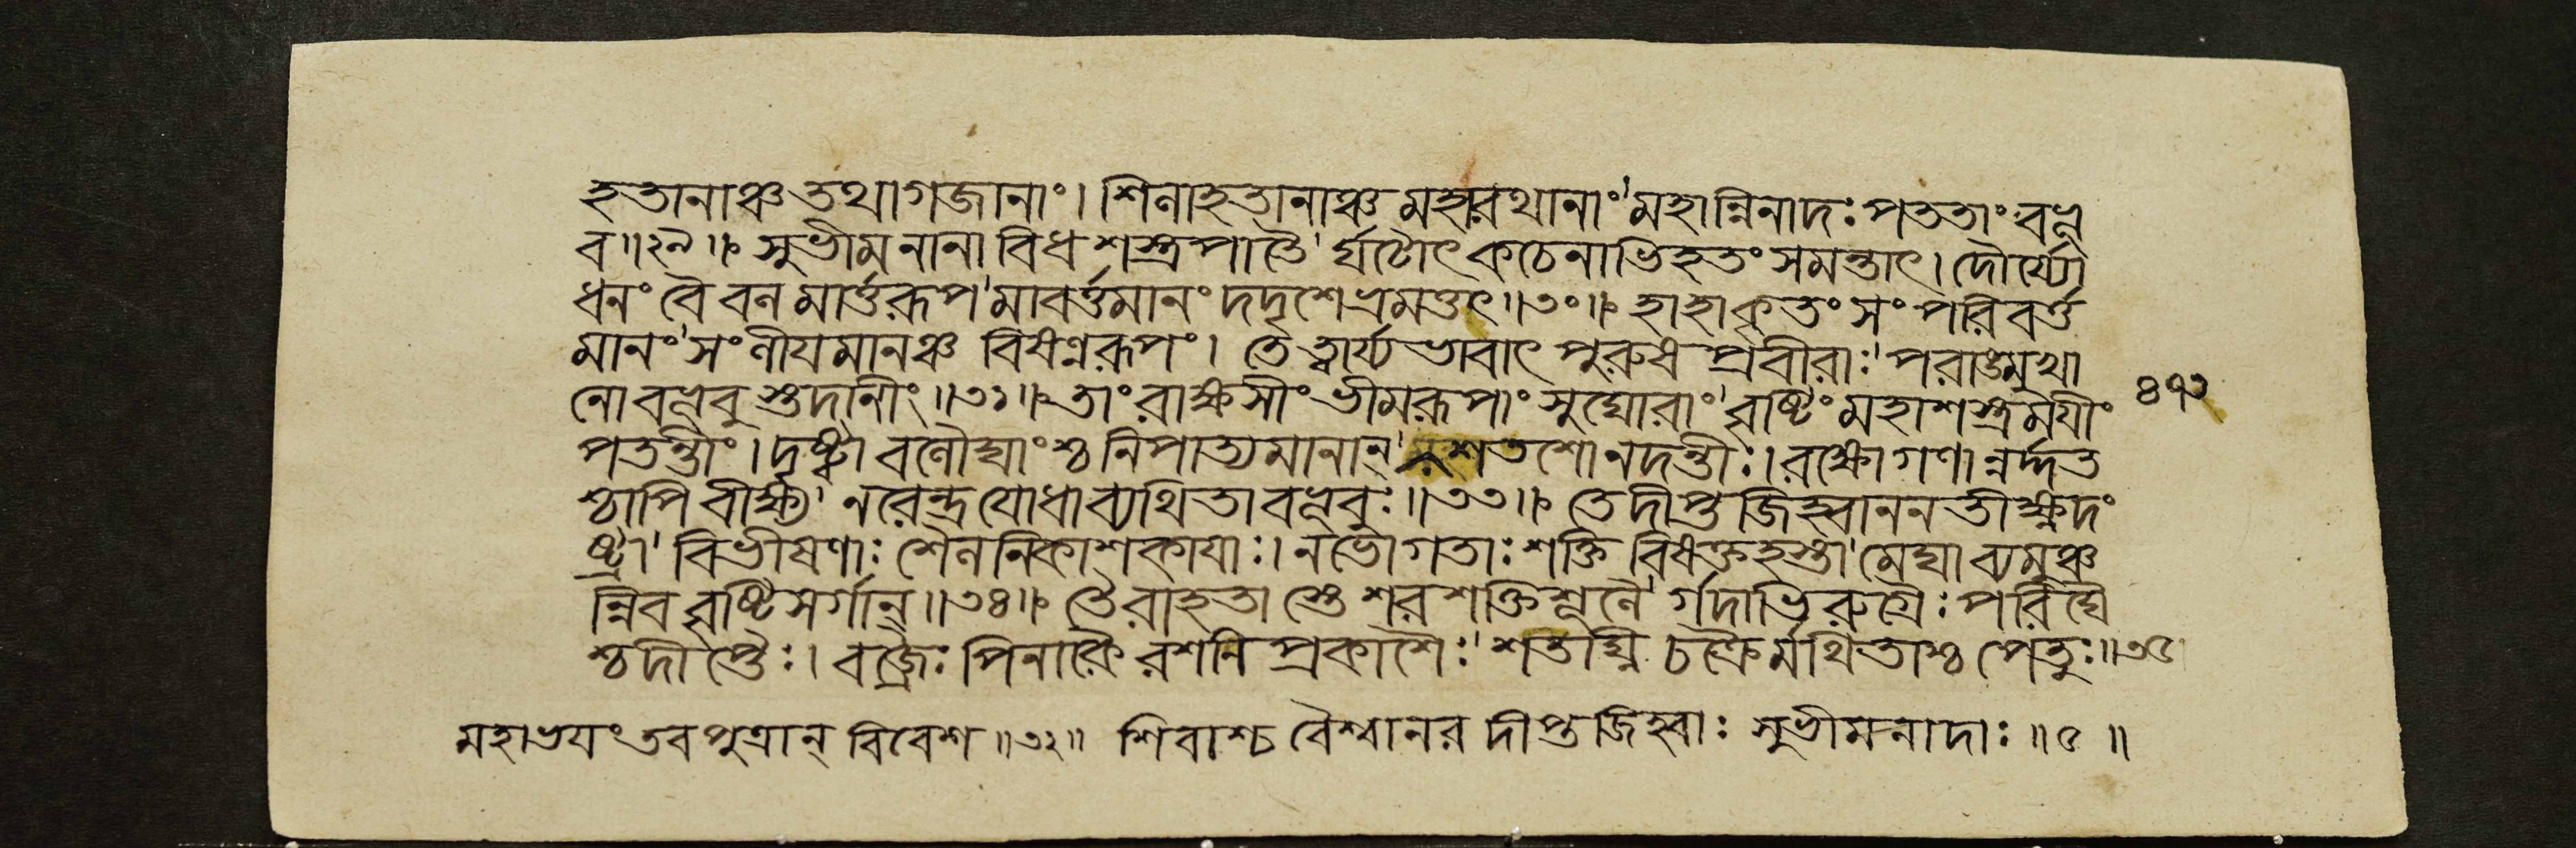 হতানাঞ্চ তথা গজানাং। শিলাহতানাঞ্চ মহারথানাং' মহান্নিনাদঃ পততাং বভূ
ব॥২৯॥ সুভীমনানাবিধশস্ত্রপাতৈ'র্ঘটোৎকচেনাভিহতং সমন্তাৎ। দৌর্য্যো
ধনং বৈ বলমার্ত্তরূপ'মাবর্ত্তমানং দদৃশে ভ্রমত্তৎ॥৩০॥ হাহাকৃতং সংপরিবর্ত্ত
মানং' সংলীযমানঞ্চ বিষণ্নরূপং। তে ত্বার্য্যভাবাৎ পুরুষপ্রবীরাঃ' পরাঙ্মুখা
নো বভূবুস্তদানীং॥৩১॥ তাং রাক্ষসীং ভীমরূপাং সুঘোরাং' বৃষ্টিং মহাশস্ত্রমযীং
পতন্তীং। দৃষ্ট্বা বলৌঘাংশ্চ নিপাত্যমানান্' শতশো নদন্তীঃ। রক্ষোগণান্নর্দ্দত
শ্চাপি বীক্ষ্য' নরেন্দ্রযোধা ব্যথিতা বভূবুঃ॥৩৩॥ তে দীপ্তজিহ্বানন তীক্ষ্ণদং
ষ্ট্রা' বিভীষণাঃ শৈলনিকাশকাযাঃ। নভোগতাঃ শক্তিবিষক্তহস্তা' মেঘা ব্যমুঞ্চ
ন্নিব বৃষ্টিসর্গান্॥৩৪॥ তৈরাহতাস্তে শরশক্তিশূলৈ'র্গদাভিরুগ্রৈঃ পরিঘৈ
শ্চ দীপ্তৈঃ। বজ্রৈঃ পিনাকৈরশনিপ্রকাশৈঃ' শতঘ্নিচক্রৈর্মথিতাশ্চ পেতুঃ॥৩৫
৪৭২
মহাভযং তব পুত্রান্ বিবেশ॥৩২॥ শিবাশ্চ বৈশ্বানরদীপ্তজিহ্বাঃ সুভীমনাদাঃ॥৫॥